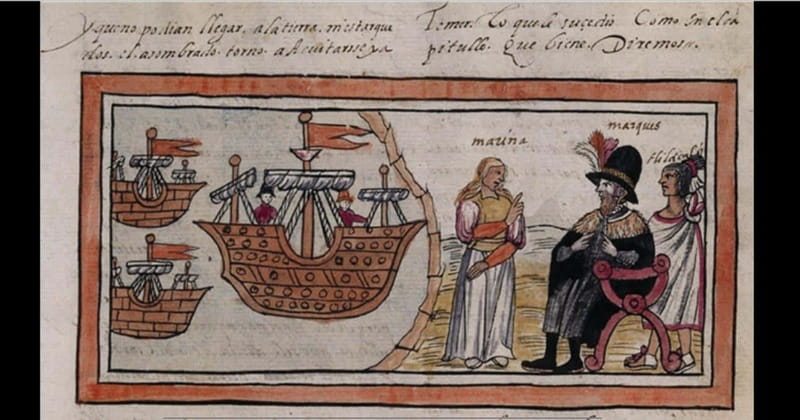 y que no podian llegar, a la tierra. ni estar que
dos. el asombrado. torno. a Acuitarse ya
Temer. Lo que le suçedio Como In el ca
pitullo. Que biene. Diremos.
marina
marques